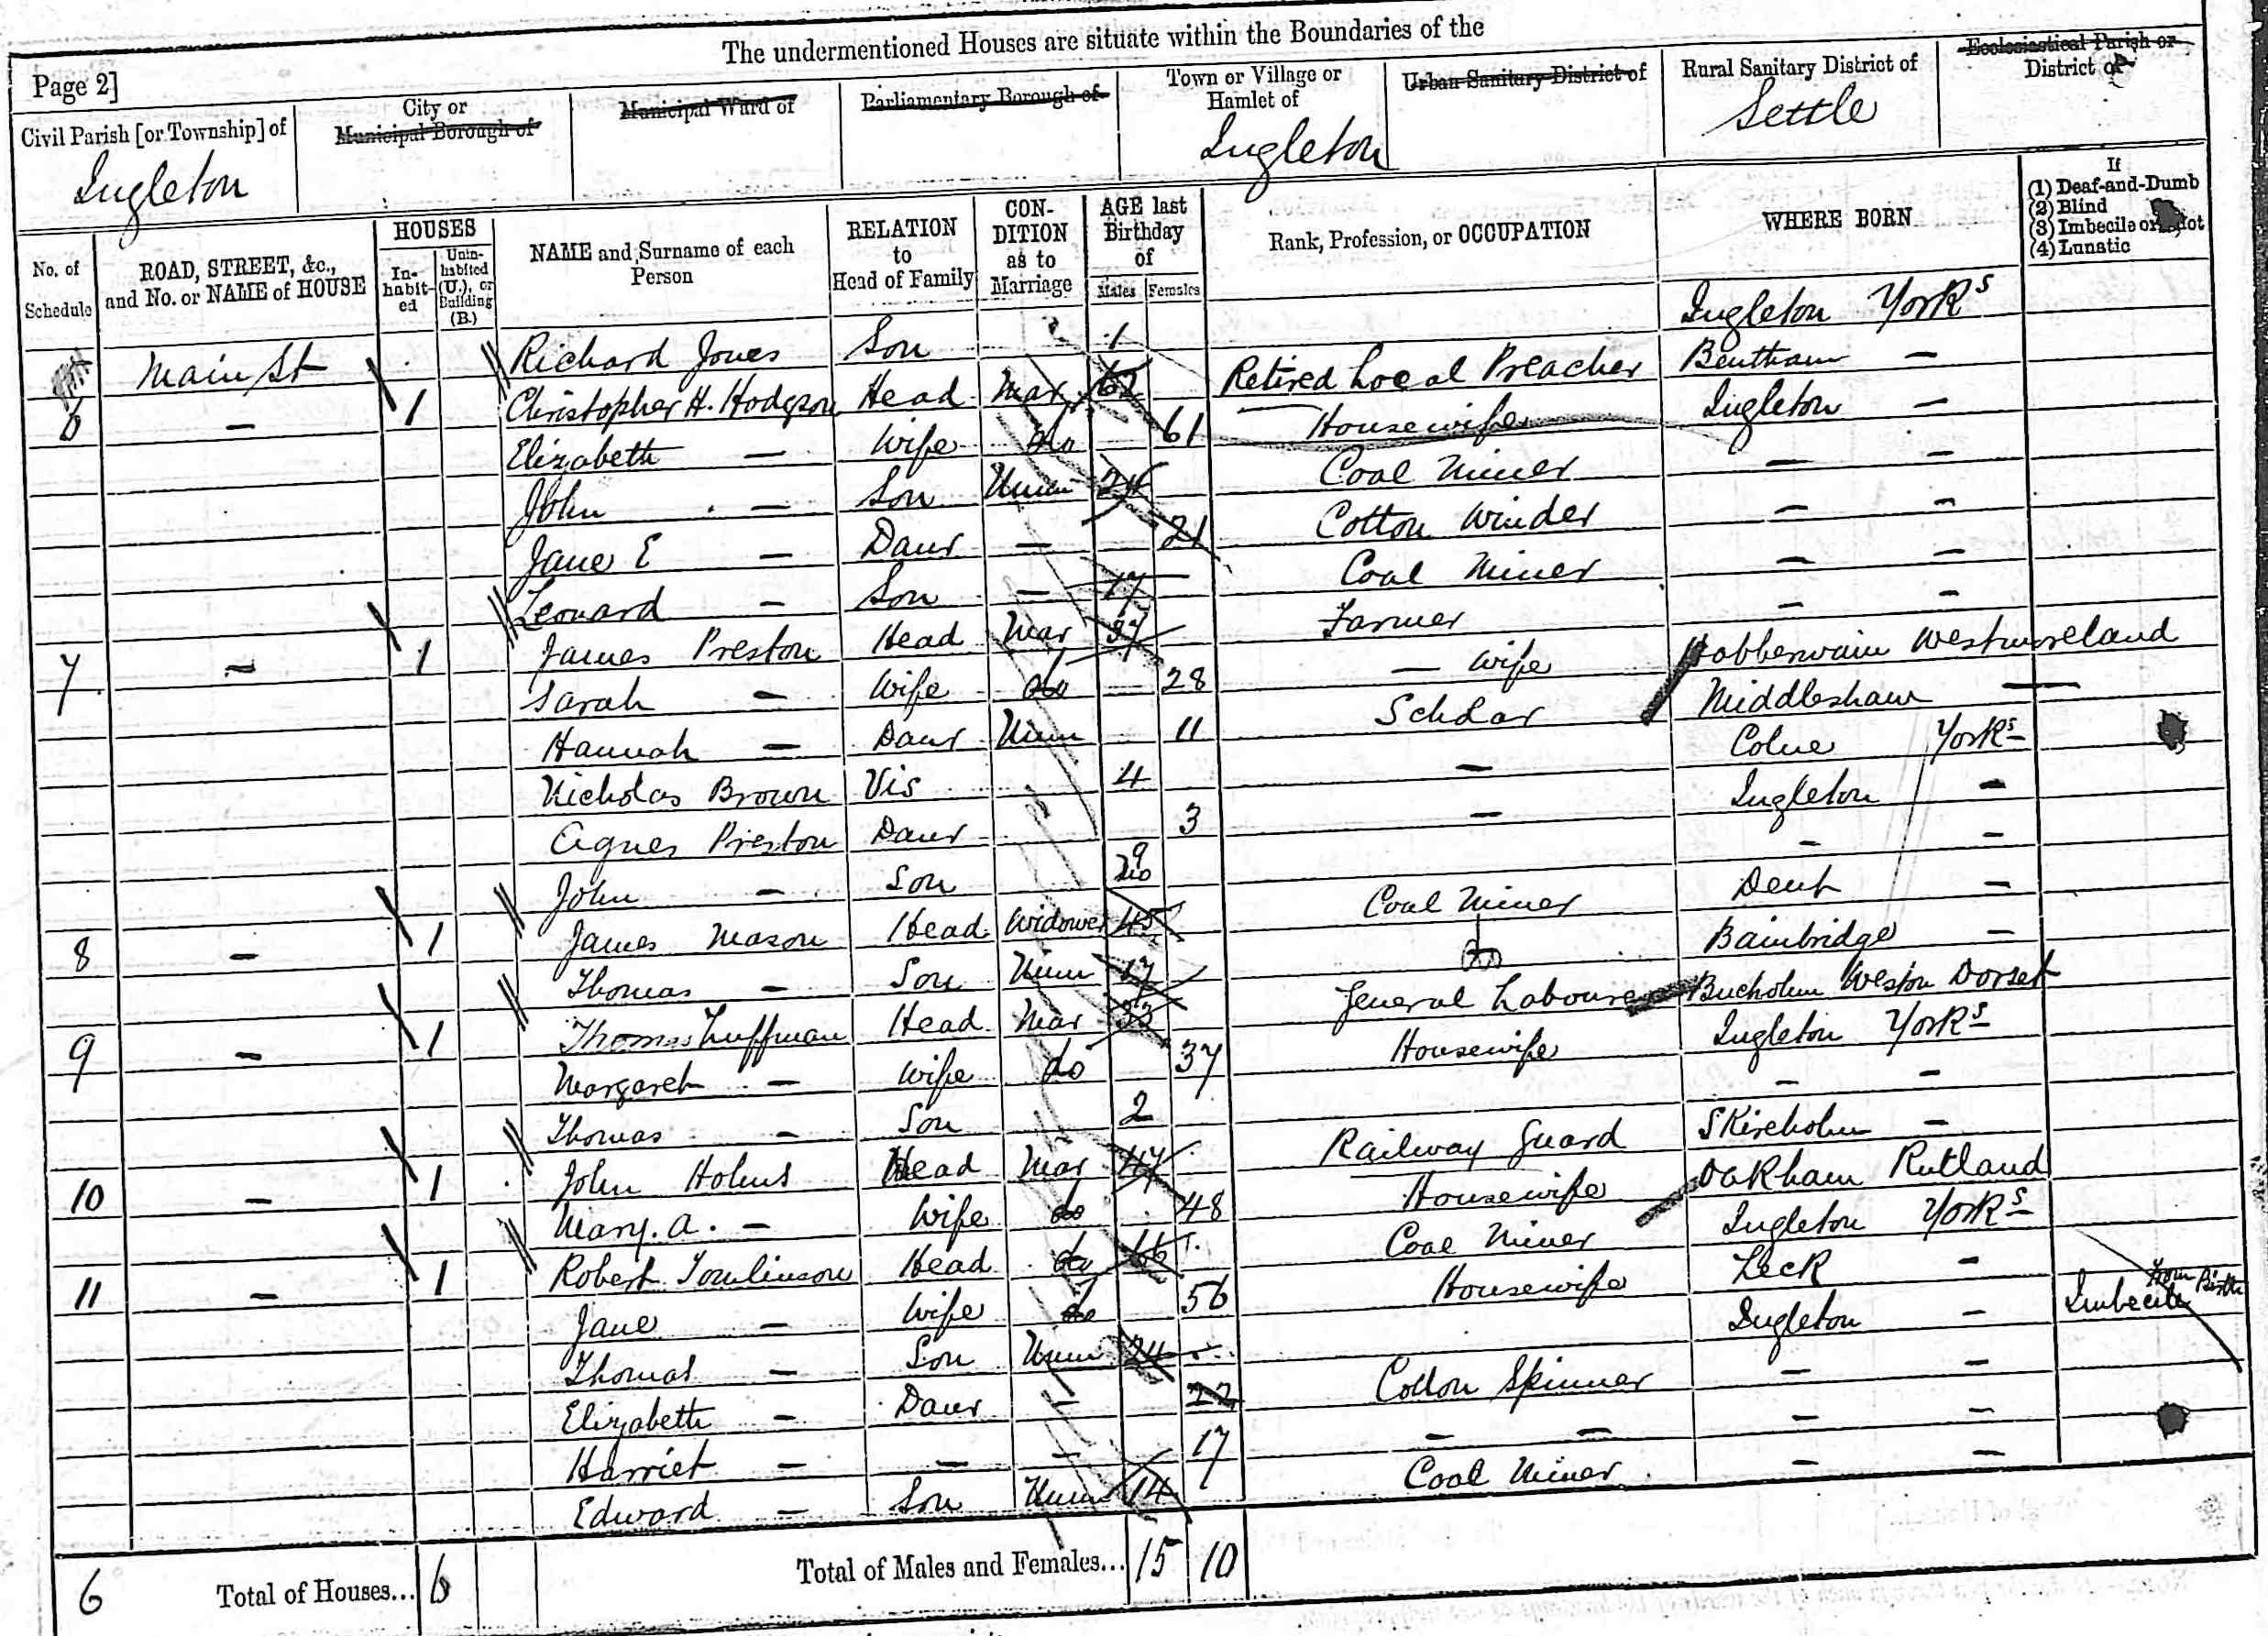 The undermentioned Houses are situate within the Boundaries of the
Page 2]
Civil Parish [or Township] of
Ingleton
City or
Municipal Borough of
Municipal Ward of
Parliamentary Borough of
Town or Village or
Hamlet of
Ingleton
Urban Sanitary District of
Rural Sanitary District of
Settle
Ecclesiastical Parish or
District of
No. of
Schedule
ROAD, STREET, &c.,
and No. or NAME of HOUSE
HOUSES
In-
habit-
ed
Unin-
habited
(U.), or
Building
(B.)
NAME and Surname of each
Person
RELATION
to
Head of Family
CON-
DITION
as to
Marriage
AGE last
Birthday
of
Males Females
Rank, Profession, or OCCUPATION
WHERE BORN
If
(1) Deaf-and-Dumb
(2) Blind
(3) Imbecile or Idiot
(4) Lunatic
Main St Richard Jones Son 1 Ingleton Yorks
6 — 1 Christopher H. Hodgson Head Mar 62 Retired Local Preacher Bentham —
Elizabeth — Wife do 61 Housewife Ingleton —
John — Son Unm 24 Coal Miner — —
Jane E — Daur — 21 Cotton Winder — —
Leonard — Son — 17 Coal Miner — —
7 — 1 James Preston Head Mar 37 Farmer — —
Sarah — Wife do 28 — Wife Westmoreland
Hannah — Daur Unm 11 Scholar Middleshaw —
Nicholas Brown Vis 4 — Colne Yorks
Agnes Preston Daur 3 — Ingleton —
John — Son 9 mo — —
8 — 1 James Mason Head Widower 45 Coal Miner Dent —
Thomas — Son Unm 17 do Bainbridge —
9 — 1 Thomas Luffman Head Mar 33 General Labourer Bucholm Weston Dorset
Margaret — Wife do 37 Housewife Ingleton Yorks
Thomas — Son 2 — —
10 — 1 John Holms Head Mar 47 Railway Guard Skireholm —
Mary. A. — Wife do 48 Housewife Oakham Rutland
11 — 1 Robert Tomlinson Head do Coal Miner Ingleton Yorks
Jane — Wife do 56 Housewife Leck —
Thomas — Son Unm 24 Ingleton — Imbecile from Birth
Elizabeth — Daur — 22 Cotton Spinner — —
Harriet — — — 17 — — — —
Edward — Son Unm 14 Coal Miner — —
6 Total of Houses... 6 Total of Males and Females... 15 10